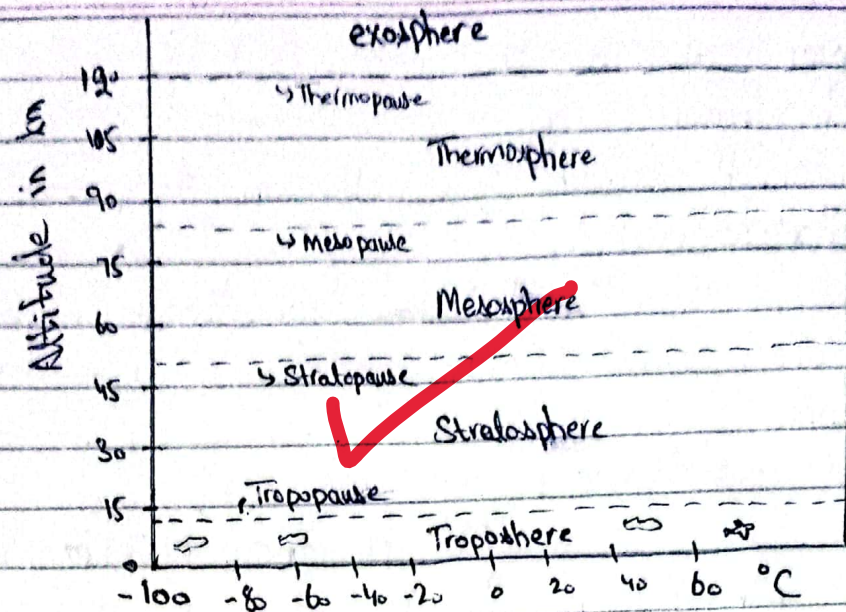 exosphere
120
Thermopause
105
Thermosphere
90
Mesopause
75
Mesosphere
60
Stratopause
45
Stratosphere
30
Tropopause
15
Troposhere
0
-100 -80 -60 -40 -20 0 20 40 60 °C
Altitude in km